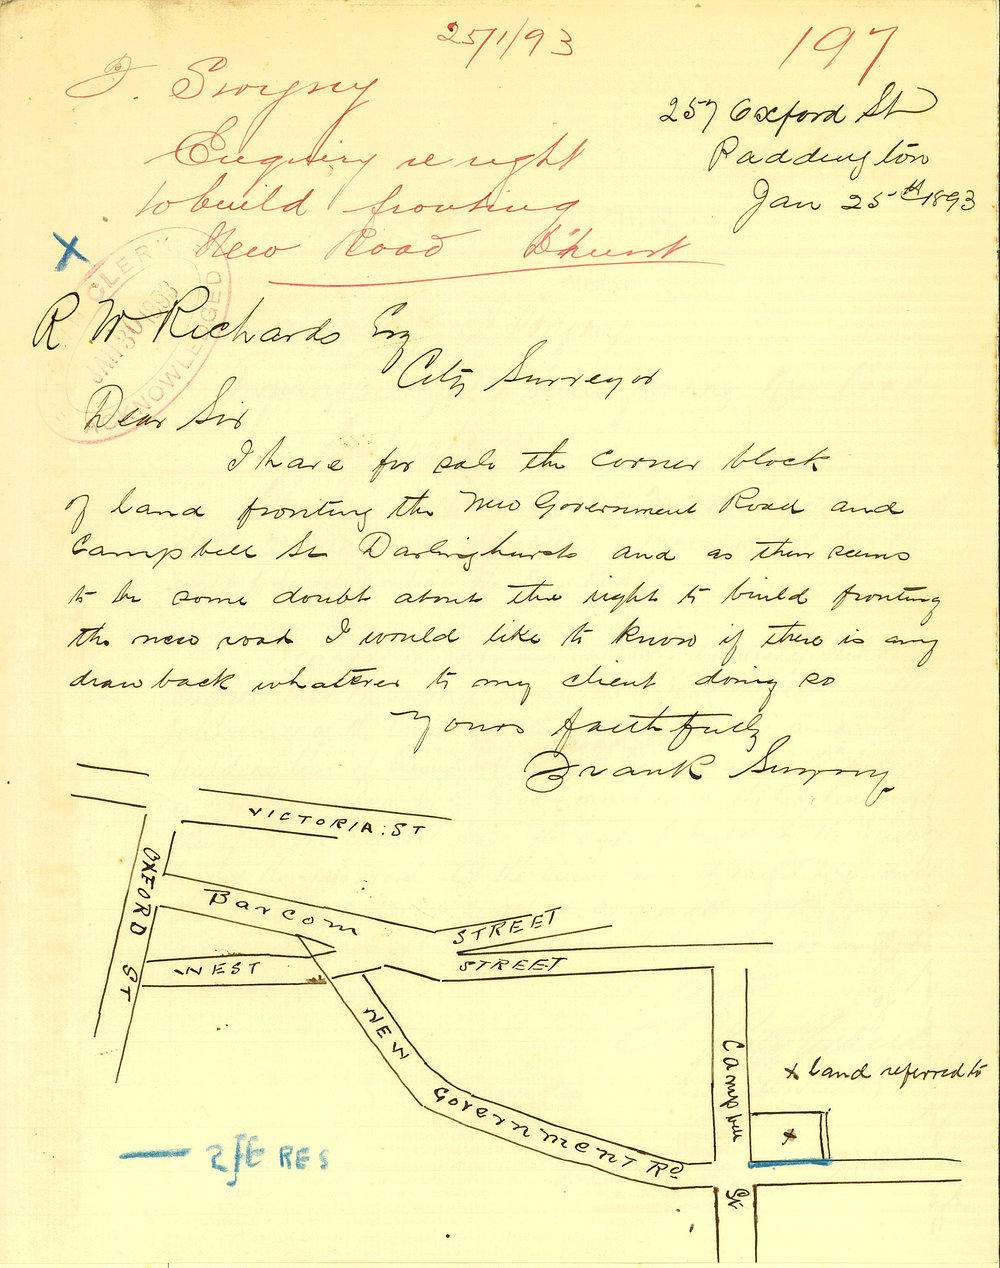 25/1/93
197
F. Swyny
Enquiry re right
to build fronting
New Road D'hurst
257 Oxford St
Paddington
Jan 25th 1893
CLERK
JAN 30 1893
ACKNOWLEDGED
R W Richards Esq
City Surveyor
Dear Sir
I have for sale the corner block
of land fronting the New Government Road and
Campbell St Darlinghurst and as there seems
to be some doubt about the right to build fronting
the new road I would like to know if there is any
drawback whatever to my client doing so
Yours faithfully
Frank Swyny
VICTORIA: ST
OXFORD ST
Barcom STREET
WEST STREET
NEW Government Rd
Campbell St
x land referred to
x
RES